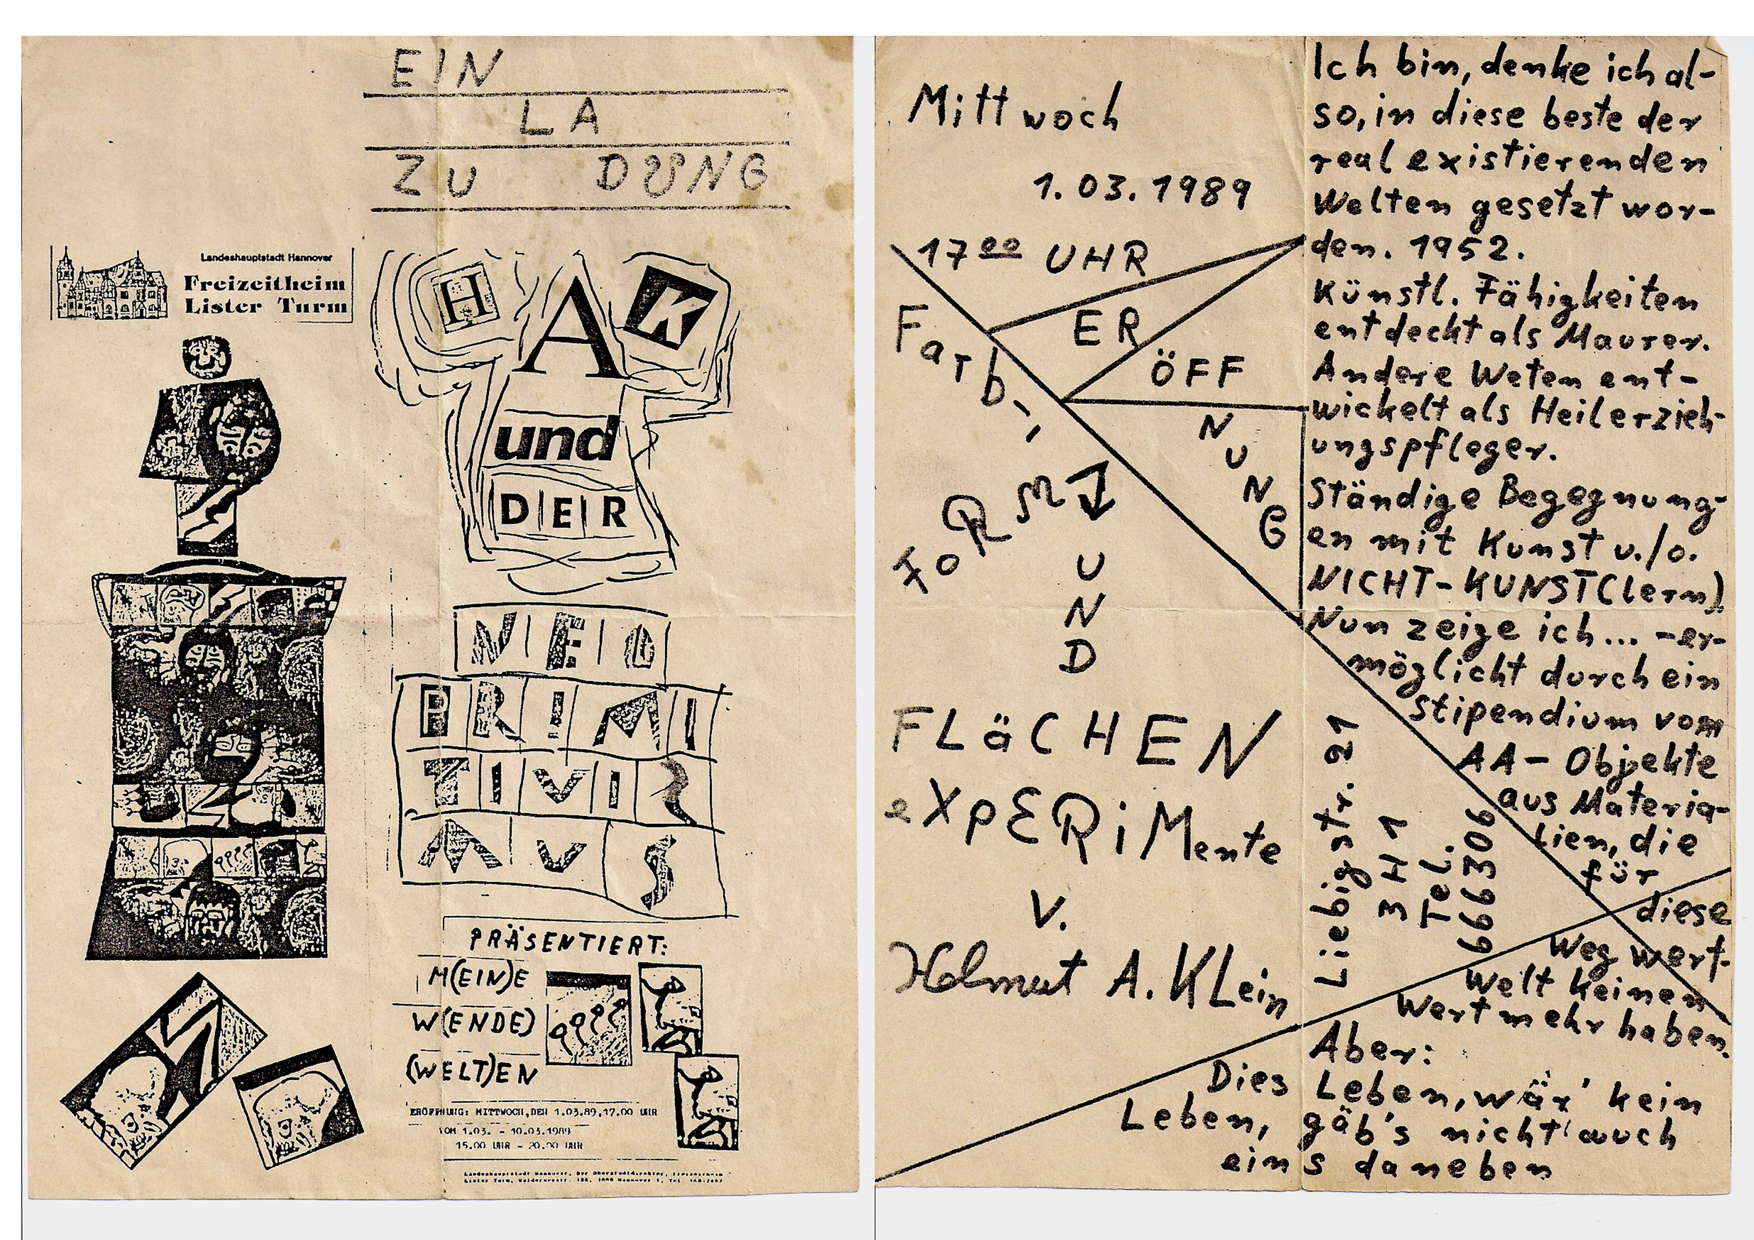 EIN
LA
ZU DUNG
Landeshauptstadt Hannover
Freizeitheim
Lister Turm
HAK
und
DER
NEO
PRIMI
TIVIS
MUS
PRÄSENTIERT:
M(EIN)E
W(ENDE)
(WELT)EN
ERÖFFNUNG: MITTWOCH, DEN 1.03.89, 17.00 UHR
VOM 1.03. - 10.03.1989
15.00 UHR - 20.00 UHR
Landeshauptstadt Hannover, Der Oberstadtdirektor, Freizeitheim
Lister Turm,
Mittwoch
1.03.1989
17 00 UHR
ER
ÖFF
NUNG
Farb-
FORM
UND
FLäCHEN
eXpERiMente
v.
Helmut A. KLein
Liebigstr. 21
3 H 1
Tel.
666306
Ich bin, denke ich al-
so, in diese beste der
real existierenden
Welten gesetzt wor-
den. 1952.
Künstl. Fähigkeiten
entdeckt als Maurer.
Andere Weten ent-
wickelt als Heilerzieh-
ungspfleger.
Ständige Begegnung-
en mit Kunst u./o.
NICHT-KUNST(lern).
Nun zeige ich... -er-
möglicht durch ein
Stipendium vom
AA- Objekte
aus Materia-
lien, die
für
diese
Weg werf-
Welt keinen
Wert mehr haben.
Aber:
Dies Leben, wär' kein
Leben, gäb's nicht auch
eins daneben